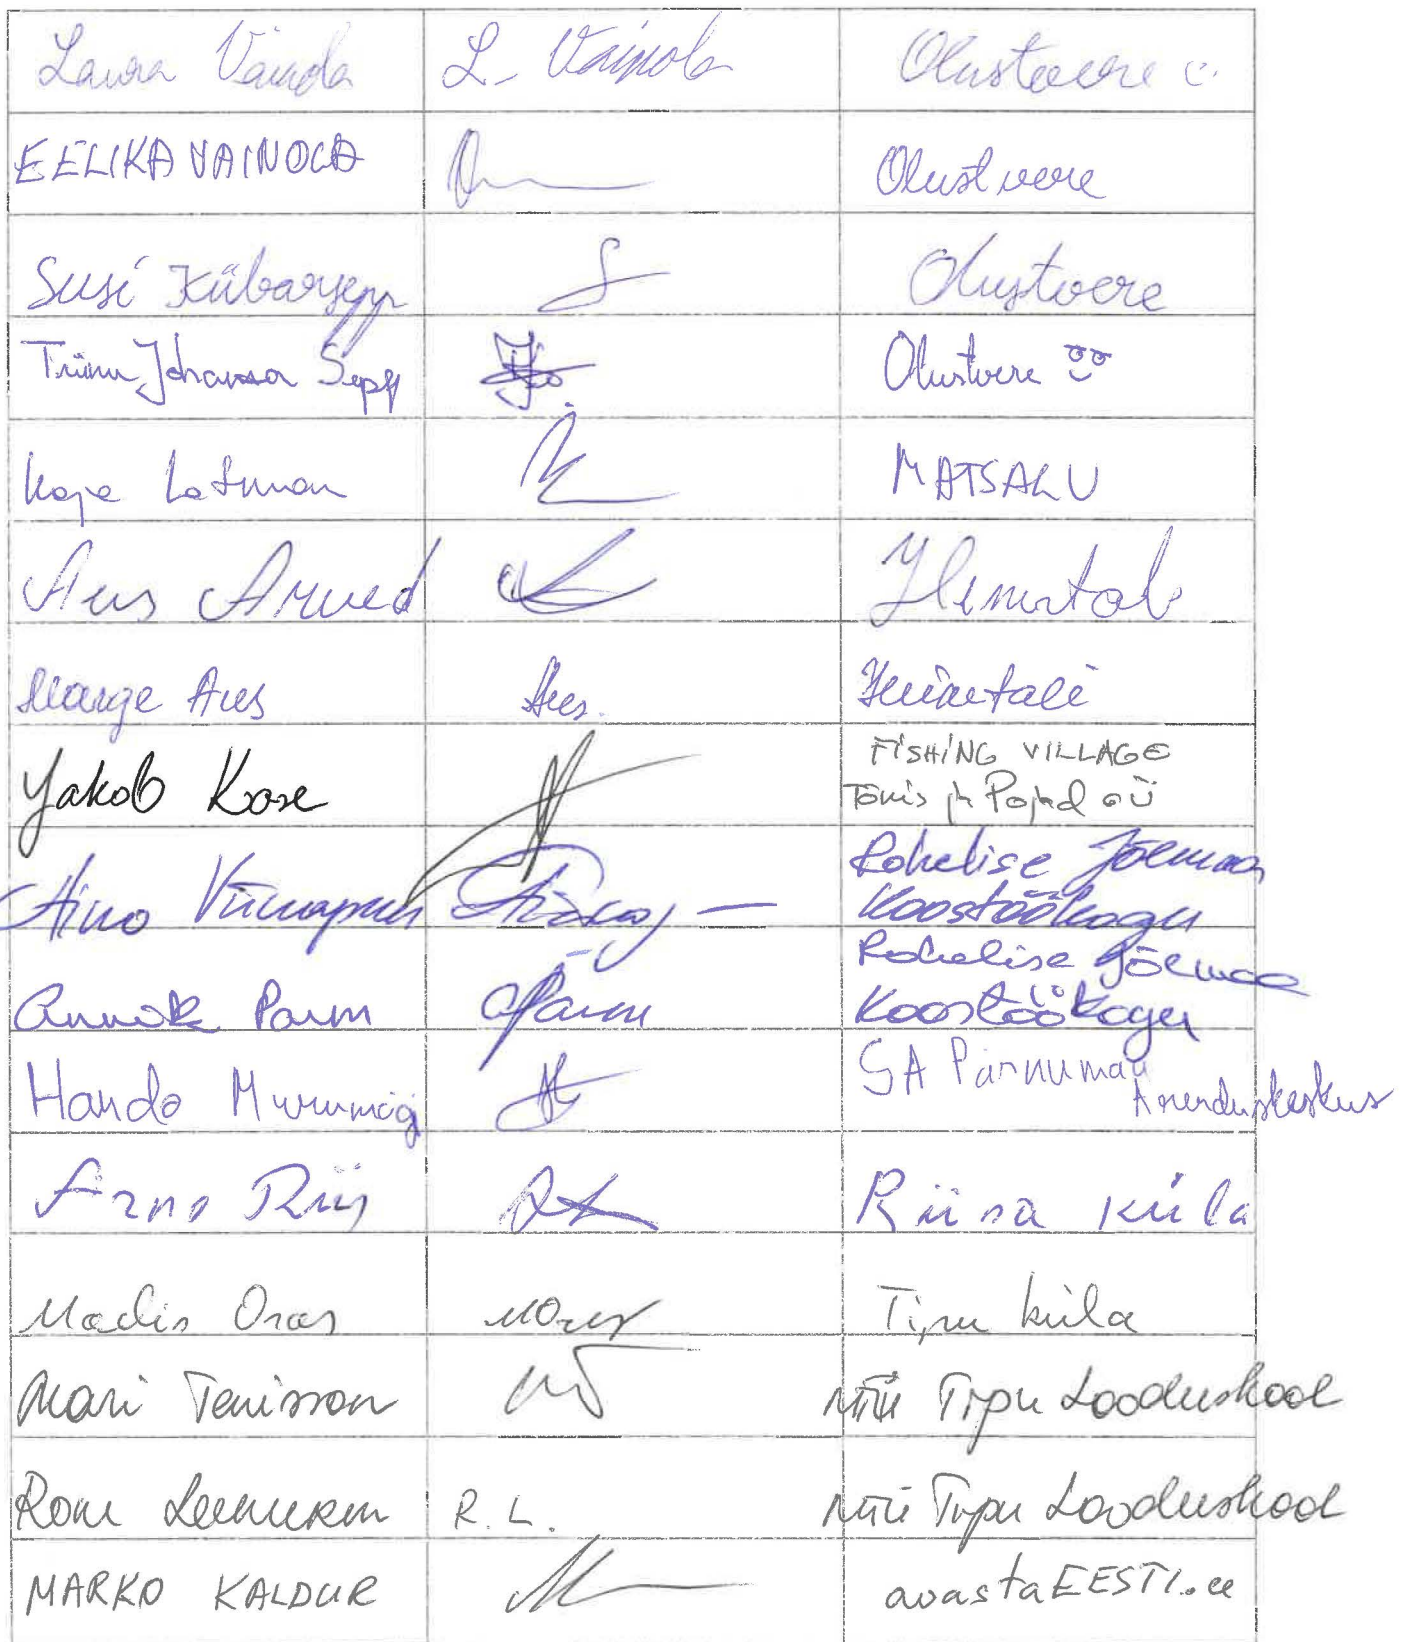 Laura Vainola L. Vainola Olustvere
EELIKA VAINOLA Olustvere
Susi Kübarsepp Olustvere
Triinu Johanna Sepp Olustvere
Kaja Lotman MATSALU
Aus Arved Heimtali
Marge Aus Aus. Heimtali
Jakob Kose FISHING VILLAGE
Tõnis ja Pojad OÜ
Aino Viinapuu Rohelise Jõemaa
Koostöökogu
Rohelise Jõemaa
Annika Pärm Pärm Koostöökogu
Hando Murumägi SA Pärnumaa
Arenduskeskus
Arno Riis Riisa küla
Madis Oras MOras Tipu küla
Mari Tenisson MTÜ Tipu Looduskool
R. L. MTÜ Tipu Looduskool
MARKO KALDUR avastaEESTI.ee